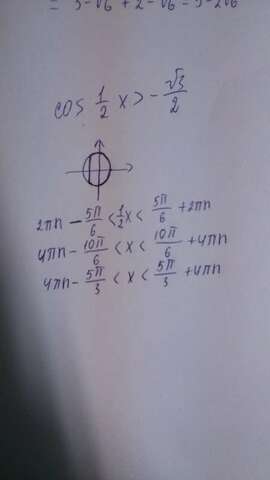 = 3-√6 + 2-√6 = 5-2√6
cos 1/2 x > - √3/2
2πn - 5π/6 < 1/2 x < 5π/6 + 2πn
4πn - 10π/6 < x < 10π/6 + 4πn
4πn - 5π/3 < x < 5π/3 + 4πn